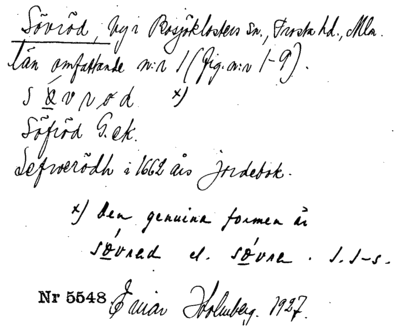 Söviöd, by i Bosjöklosters sn., Frosta hd., Mlm.
län omfattande n:r 1 (fig. n:r 1-9).
s ø v r ø d x)
Söfröd G.ek.
Sefwerödh i 1662 års jordebok.
x) Den genuina formen är
søvrad el. søvra. J. S-s.
Nr 5548. Einar Holmberg. 1927.